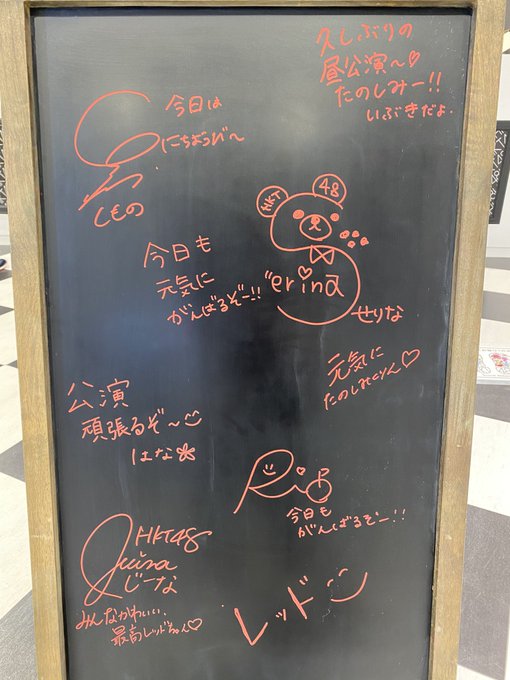 久しぶりの
昼公演〜♡
たのしみー!!
いぶきだよ.
今日は
にちようび〜
くもの
HKT
48
今日も
元気に
がんばるぞー!!
"erina
せりな
元気に
たのしみ
公演
頑張るぞ〜
はな
Rio
今日も
がんばるぞー!!
HKT48
Juina
じーな
みんなかわいい、
最高レッドちゃん♡
レッド